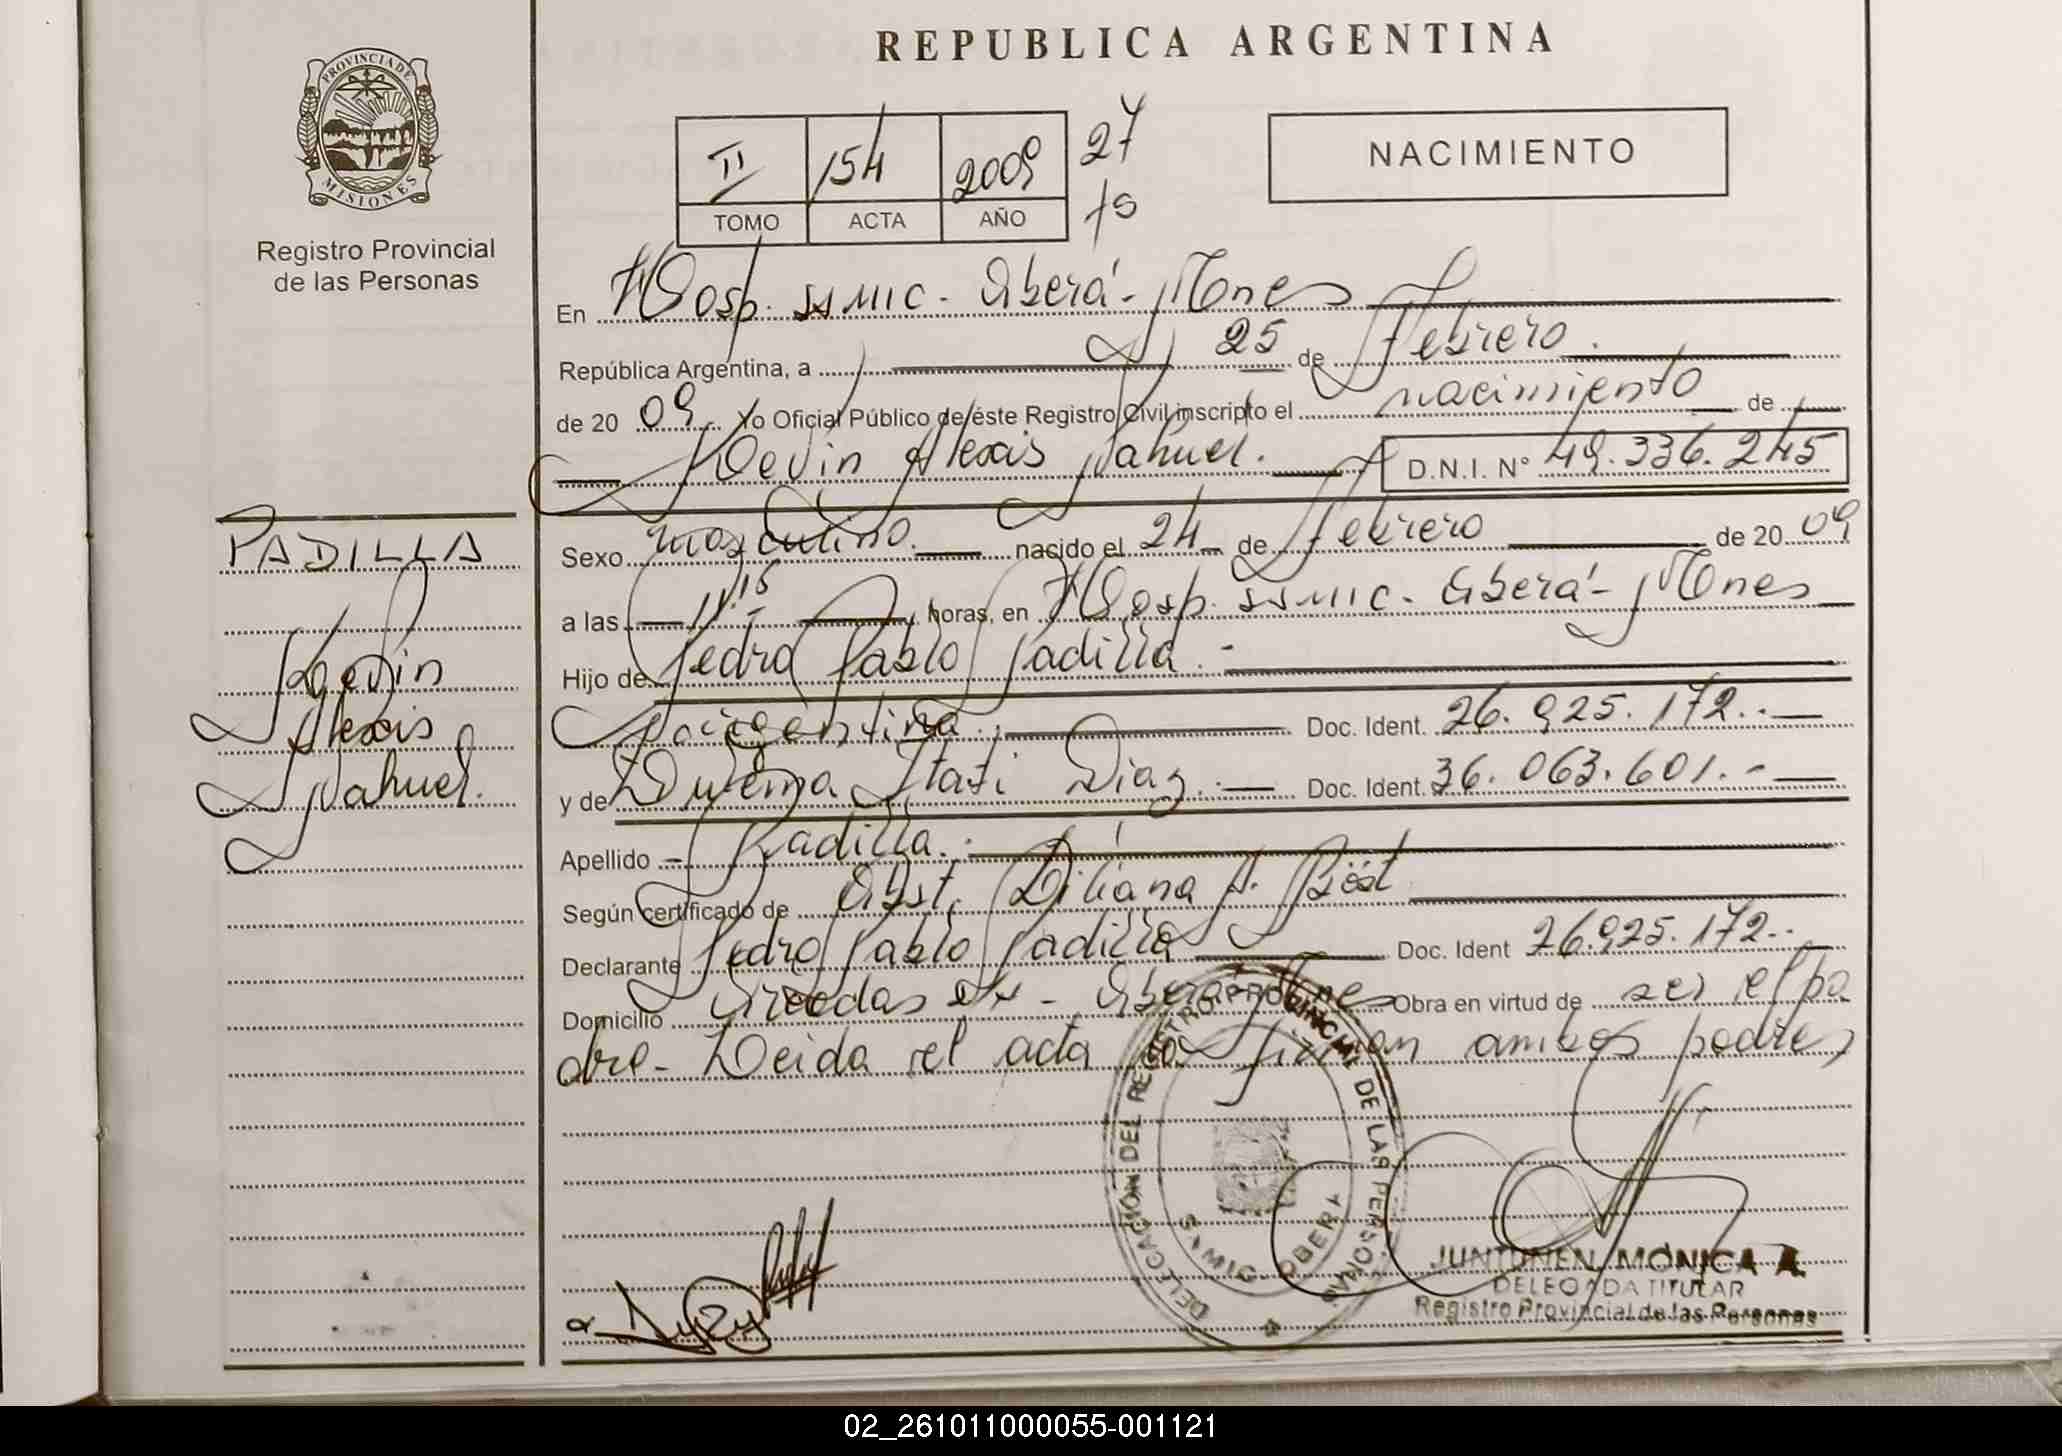 REPUBLICA ARGENTINA
PROVINCIA DE
MISIONES
Registro Provincial
de las Personas
II 154 2009 27
TOMO ACTA AÑO fs
NACIMIENTO
En Hosp. SSMIC. Oberá - Mnes
República Argentina, a 25 de Febrero.
de 20 09 Yo Oficial Público de éste Registro Civil inscripto el nacimiento de
Kevin Alexis Nahuel. D.N.I. N° 49.336.245
PADILLA
Kevin
Alexis
Nahuel.
Sexo masculino. nacido el 24 de Febrero de 20 09
a las 11.15 horas, en Hosp. SSMIC. Oberá - Mnes
Hijo de Pedro Pablo Padilla.-
Argentina. Doc. Ident. 26.925.172.-
y de Itatí Diaz. Doc. Ident. 36.063.601.-
Apellido Padilla.
Según certificado de Obst. Liliana A. Böst
Declarante Pedro Pablo Padilla Doc. Ident 26.925.172.-
Domicilio - Oberá Mnes Obra en virtud de ser el pa
dre - Leida el acta la firman ambos padres
DELEGACION DEL REGISTRO PROVINCIAL DE LAS PERSONAS
OBERA
JUNTUNEN, MONICA A.
DELEGADA TITULAR
Registro Provincial de las Personas
02_261011000055-001121